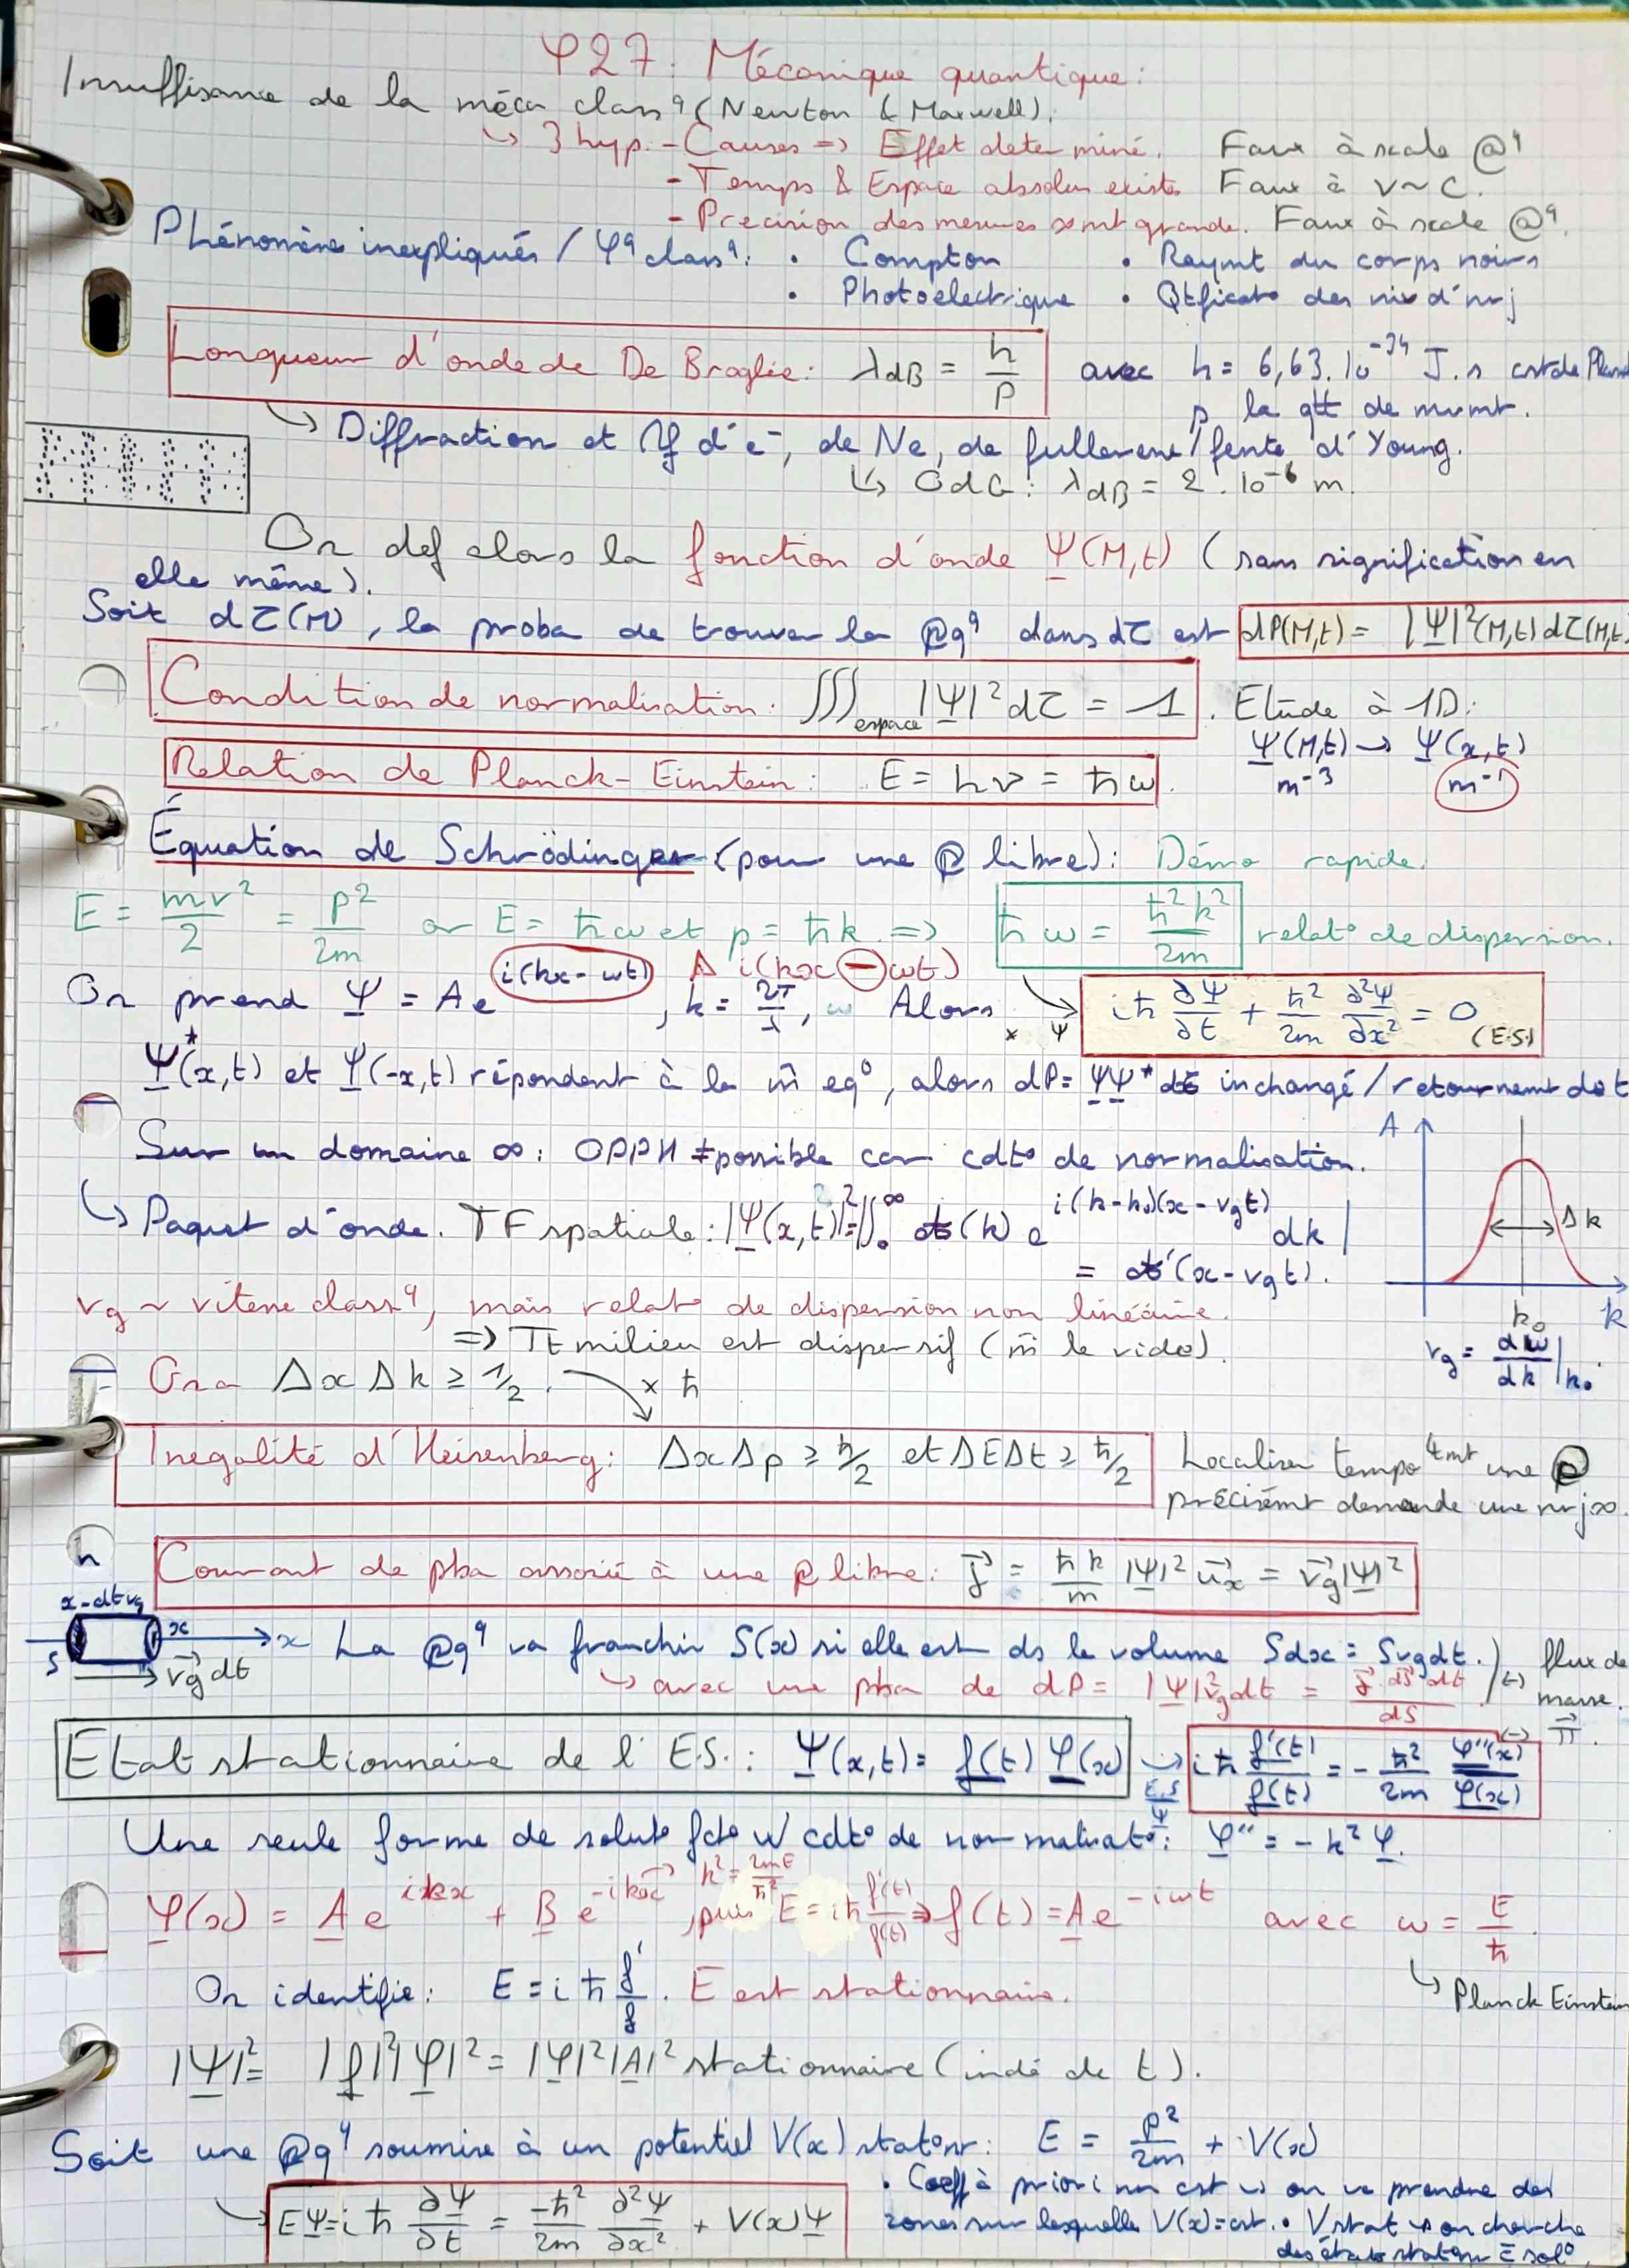 φ27: Mécanique quantique:
Insuffisance de la méca class^q (Newton & Maxwell).
↳ 3 hyp. - Causes => Effet determiné. Faux à scale @^q
- Temps & Espace absolus existe Faux à v~c.
- Precision des mesures snt grande. Faux à scale @^q.
Phénomène inexpliqués / φ^q class^q: • Compton • Raymt du corps noirs
• Photoélectrique • Qtficat° des niv d'nrj
Longueur d'onde de De Broglie: λdB = h/p avec h = 6,63.10^-34 J.s cst de Planck
p la qtt de mvmt.
↳ Diffraction et If d'e-, de Ne, de fullerene / fente d'Young.
↳ OdG: λdB = 2.10^-6 m.
On def alors la fonction d'onde Ψ(M,t) (sans signification en
elle même).
Soit dτ(M), la proba de trouver la @q^q dans dτ est dP(M,t) = |Ψ|²(M,t) dτ(M,t)
Condition de normalisation: ∭espace |Ψ|² dτ = 1. Etude à 1D:
Ψ(M,t) → Ψ(x,t)
m^-3 m^-1
Relation de Planck-Einstein: E = hν = ħω.
Équation de Schrödinger (pour une ℗ libre): Démo rapide.
E = mv²/2 = p²/2m or E = ħω et p = ħk => ħω = ħ²k²/2m relat° de dispersion.
On prend Ψ = A e^i(kx-ωt) Δ i(kx-ωt), k = 2π/λ, ω Alors × Ψ iħ ∂Ψ/∂t + ħ²/2m ∂²Ψ/∂x² = 0 (E.S.)
Ψ*(x,t) et Ψ(-x,t) répondent à la m̂ eq°, alors dP = ΨΨ* dτ inchangé / retournemt de t
Sur un domaine ∞: OPPH ≠possible car cdt° de normalisation.
A
↳ Paquet d'onde. TF spatiale: |Ψ(x,t)|² = |∫0^∞ A(k) e^i(k-k₀)(x-vgt) dk|
= A'(x-vgt).
Δk
k₀ k
vg ~ vitesse class^q, mais relat° de dispersion non linéaire.
=> Tt milieu est dispersif (m̂ le vide).
vg = dω/dk|k₀.
On a Δx Δk ≥ 1/2. × ħ
Inegalité d'Heisenberg: Δx Δp ≥ ħ/2 et ΔEΔt ≥ ħ/2 Localiser tempo^4mt une ℗
précisémt demande une nrj ∞.
Courant de pba associé à une ℗ libre: j = ħk/m |Ψ|² ux = vg|Ψ|²
x-dtvg x
S vg dt x La ℗q^q va franchir S(x) si elle est ds le volume Sdx = Svgdt. ↔ flux de
↳ avec une pba de dP = |Ψ|² vg dt = j dS dt / dS masse.
↔ Π.
Etat stationnaire de l'E.S.: Ψ(x,t) = f(t) φ(x) → E.S/Ψ iħ f'(t)/f(t) = - ħ²/2m φ''(x)/φ(x)
Une seule forme de solut° fct° w/ cdt° de normalisat°: φ'' = -k² φ.
φ(x) = A e^ikx + B e^-ikx k² = 2mE/ħ², puis E = iħ f'(t)/f(t) => f(t) = A e^-iωt avec ω = E/ħ.
↳ Planck Einstein
On identifie: E = iħ f'/f. E est stationnaire.
|Ψ|² = |f|²|φ|² = |φ|²|A|² stationnaire (indé de t).
Soit une ℗q^q soumise à un potentiel V(x) stat°nr: E = p²/2m + V(x)
↳ EΨ = iħ ∂Ψ/∂t = -ħ²/2m ∂²Ψ/∂x² + V(x)Ψ
• Coeff à priori nn cst ↳ on va prendre des
zones sur lesquelle V(x)=cst. • V stat ↳ on cherche
des états stat°nr